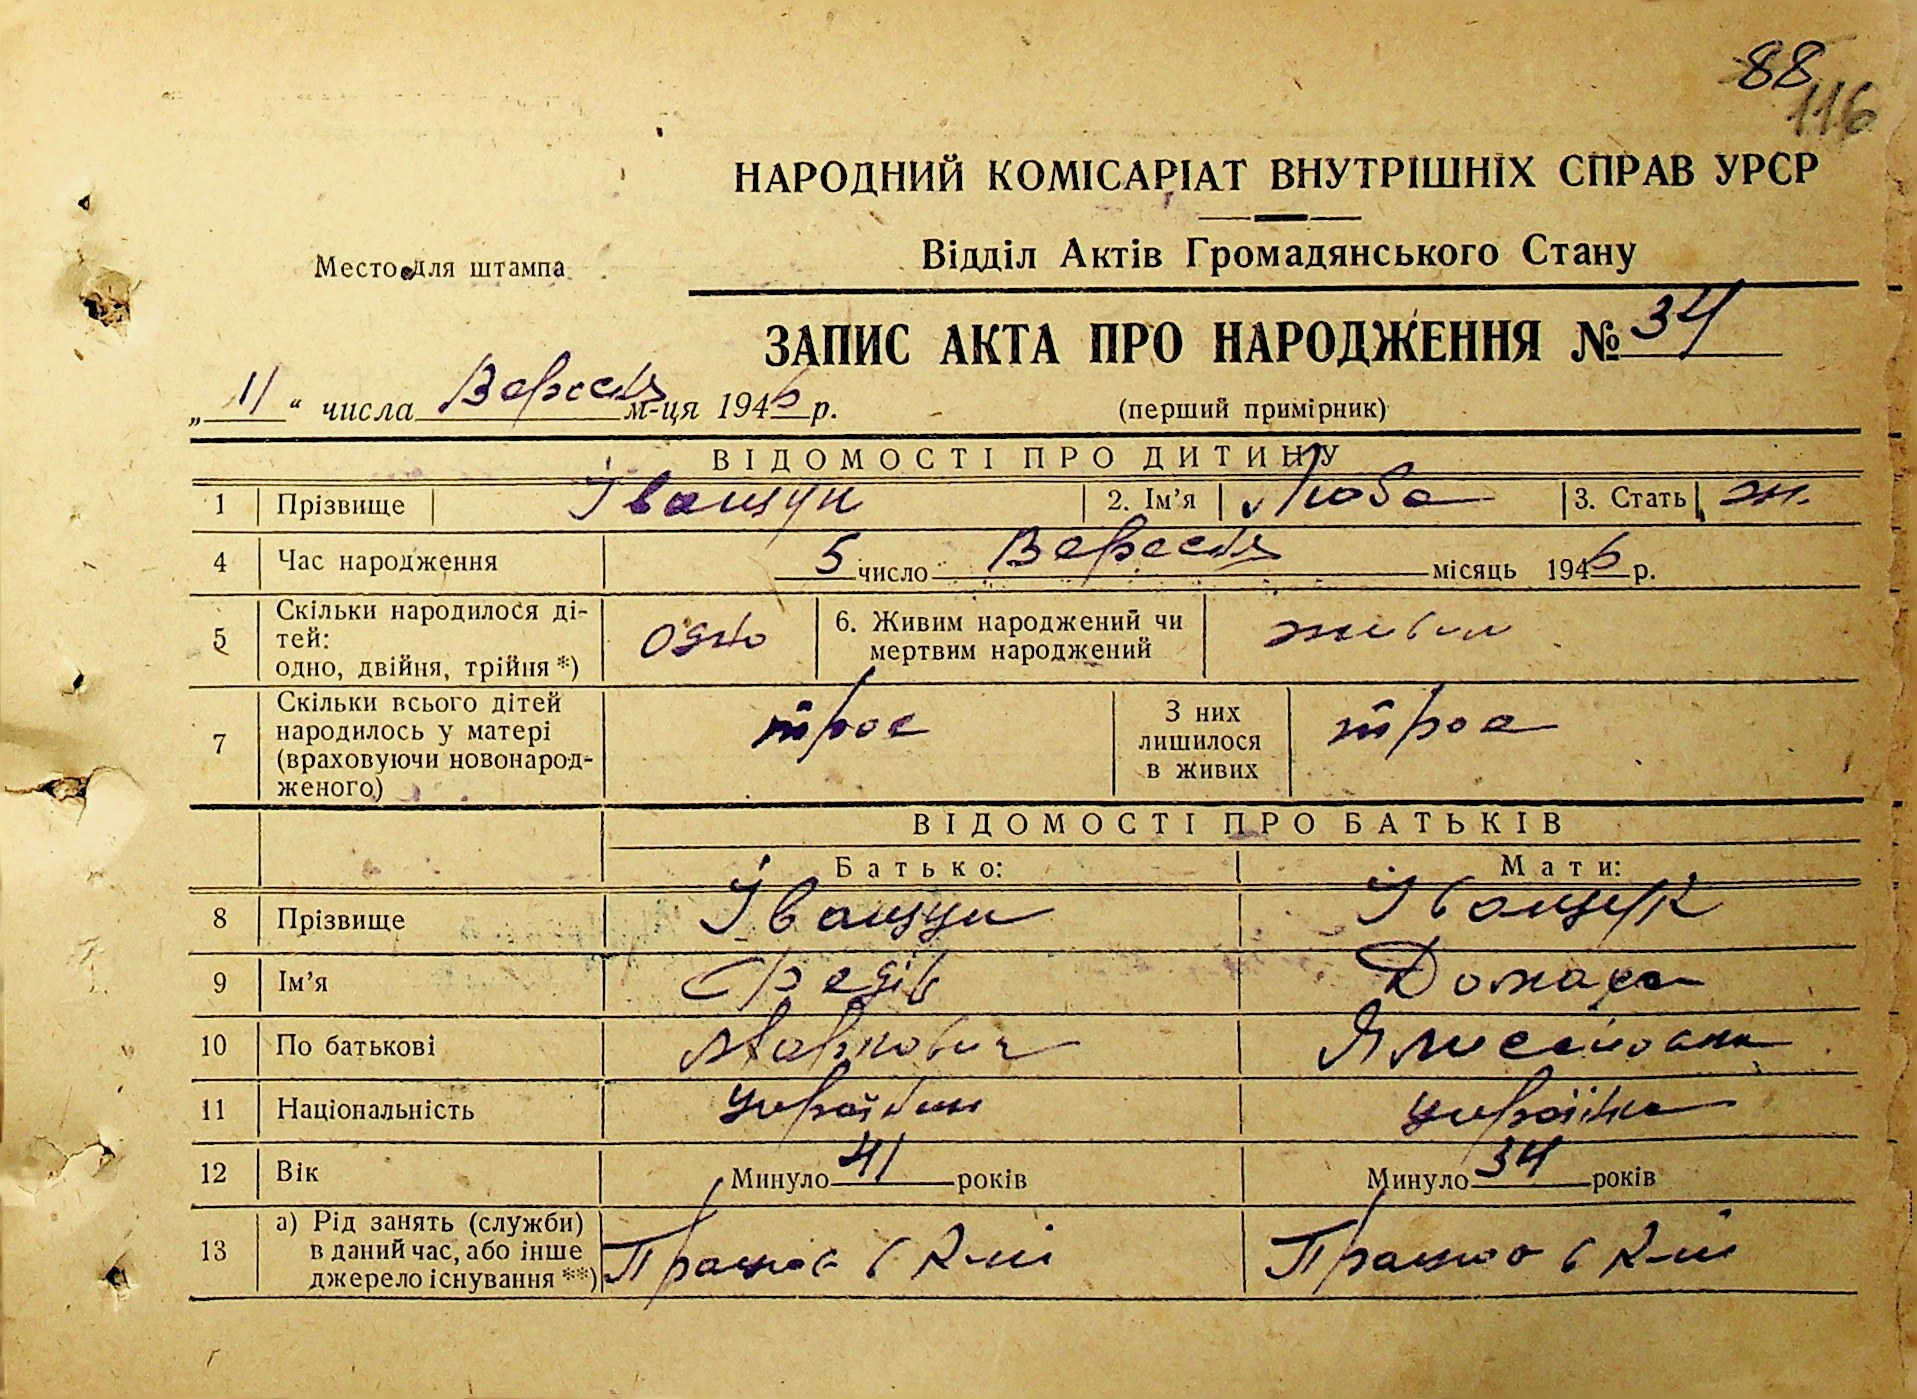 88
116
НАРОДНИЙ КОМІСАРІАТ ВНУТРІШНІХ СПРАВ УРСР
Место для штампа
Відділ Актів Громадянського Стану
ЗАПИС АКТА ПРО НАРОДЖЕННЯ № 34
„ 11 “ числа Вересня м-ця 1946 р.
(перший примірник)
ВІДОМОСТІ ПРО ДИТИНУ
1 Прізвище Іващук 2. Ім'я Люба 3. Стать ж.
4 Час народження 5 число Вересня місяць 1946 р.
5 Скільки народилося ді-
тей:
одно, двійня, трійня *) одно
6. Живим народжений чи
мертвим народжений живим
7 Скільки всього дітей
народилось у матері
(враховуючи новонарод-
женого) троє
З них
лишилося
в живих троє
ВІДОМОСТІ ПРО БАТЬКІВ
Батько: Мати:
8 Прізвище Іващук Іващук
9 Ім'я Федір
10 По батькові Маркович
11 Національність українка
12 Вік Минуло 41 років Минуло 34 років
13 а) Рід занять (служби)
в даний час, або інше
джерело існування **) Працює в к-пі Працює в к-пі